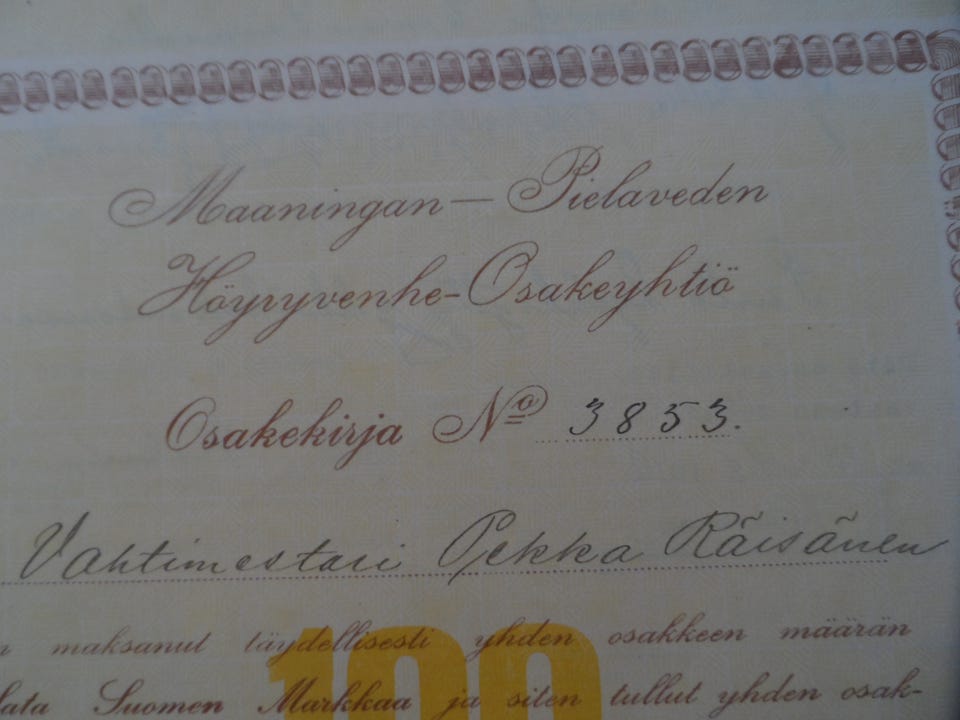 Maaningan — Pielaveden
Höyryvenhe-Osakeyhtiö
Osakekirja Nº 3853.
Vahtimestari Pekka Räisänen
maksanut täydellisesti yhden osakkeen määrän
100
Suomen Markkaa ja siten tullut yhden osak-